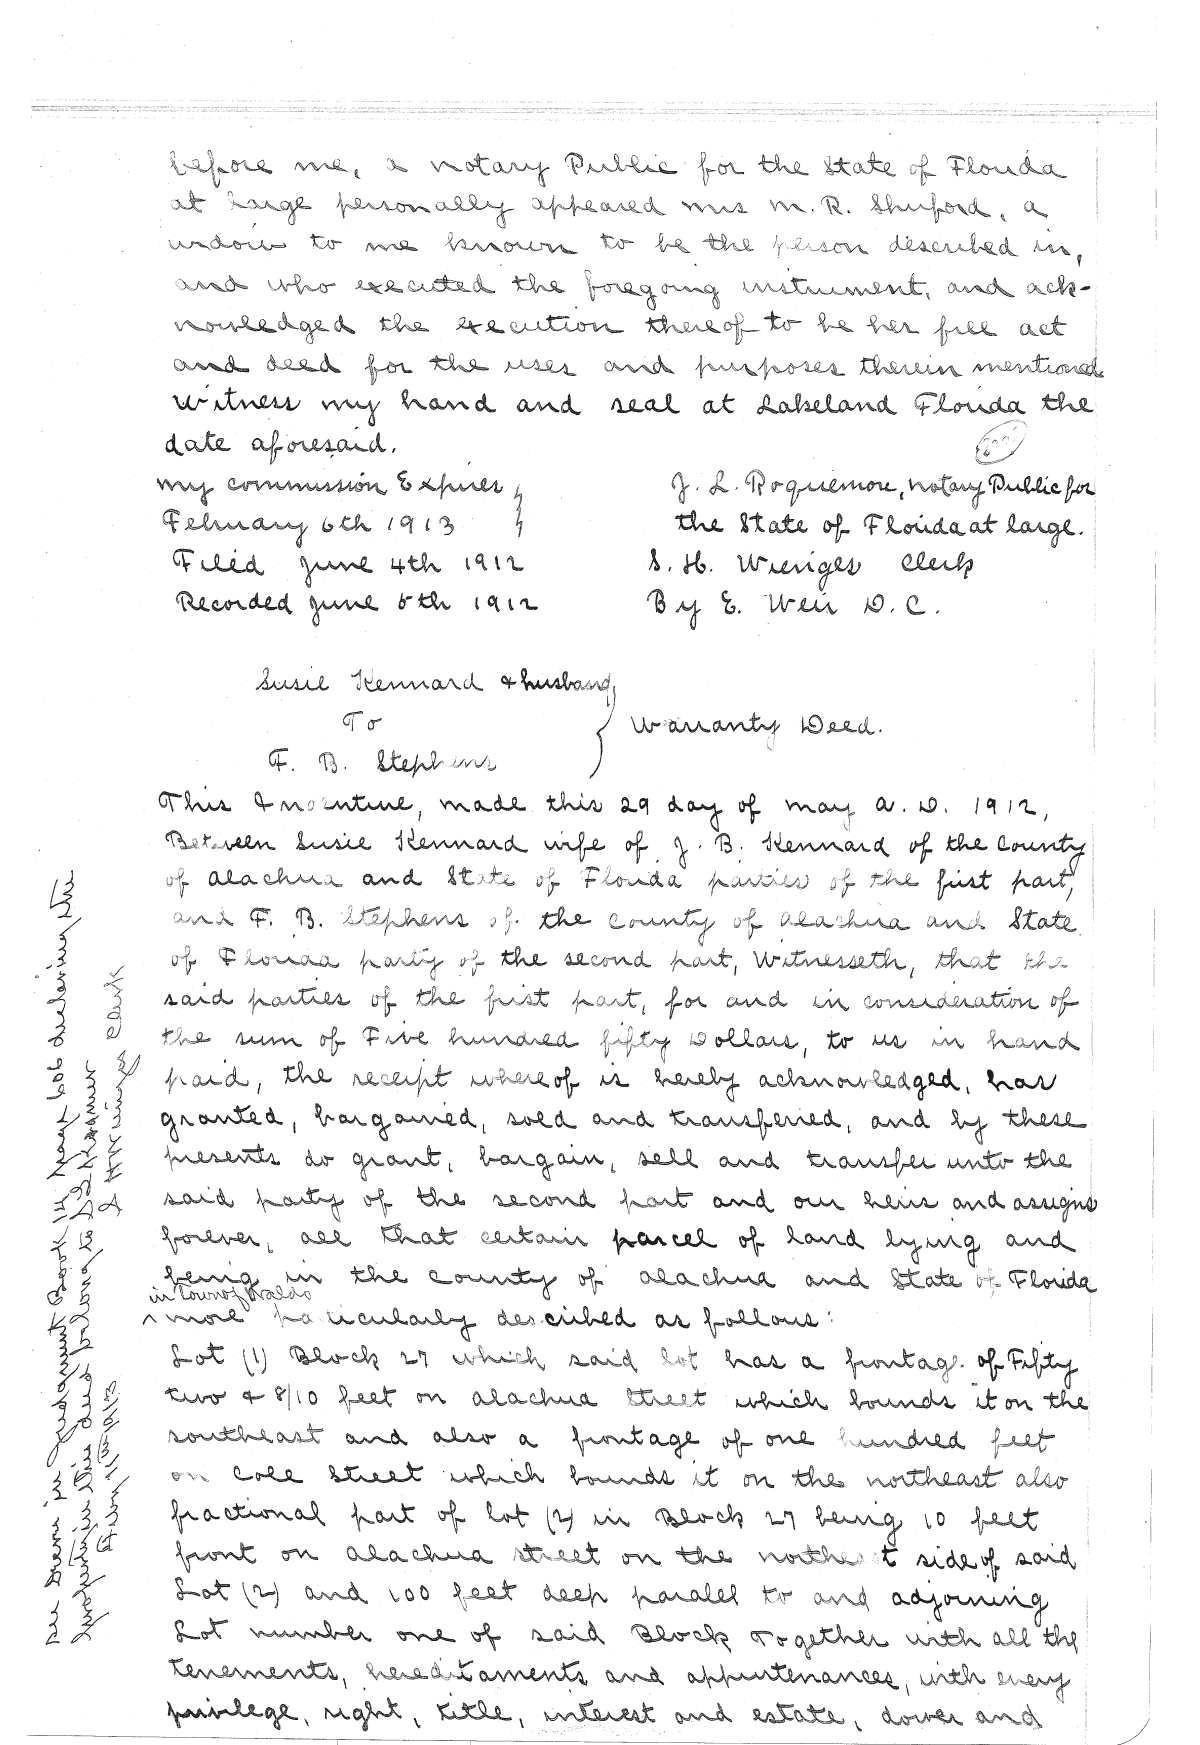 before me, a notary Public for the State of Florida
at large personally appeared mrs M. R. Shuford, a
widow to me known to be the person described in,
and who executed the foregoing instrument, and ack-
nowledged the execution thereof to be her free act
and deed for the uses and purposes therein mentioned
Witness my hand and seal at Lakeland Florida the
date aforesaid.
my commission Expires
February 6th 1913
J. L. Roquemore, notary Public for
the State of Florida at large.
Filed June 4th 1912
S. H. Wienges Clerk
Recorded June 5th 1912
By E. Weir D. C.
Susie Kennard & husband
To
F. B. Stephens
Warranty Deed.
This Indenture, made this 29 day of may A. D. 1912,
Between Susie Kennard wife of J. B. Kennard of the County
of Alachua and State of Florida parties of the first part,
and F. B. Stephens of the County of Alachua and State
of Florida party of the second part, Witnesseth, that the
said parties of the first part, for and in consideration of
the sum of Five hundred fifty Dollars, to us in hand
paid, the receipt whereof is hereby acknowledged, has
granted, bargained, sold and transferred, and by these
presents do grant, bargain, sell and transfer unto the
said party of the second part and our heirs and assigns
forever, all that certain parcel of land lying and
being in the County of Alachua and State of Florida
in Town of Waldo
^ more particularly described as follows:
Lot (1) Block 27 which said lot has a frontage of Fifty
two & 8/10 feet on Alachua Street which bounds it on the
southeast and also a frontage of one hundred feet
on Cole Street which bounds it on the northeast also
fractional part of lot (2) in Block 27 being 10 feet
front on Alachua street on the northeast side of said
Lot (2) and 100 feet deep paralel to and adjoining
Lot number one of said Block Together with all the
tenements, hereditaments and appurtenances, with every
privilege, right, title, interest and estate, dower and
See Decree in Judgment Book 14 Page 606 declaring the
this deed belong to
Clerk